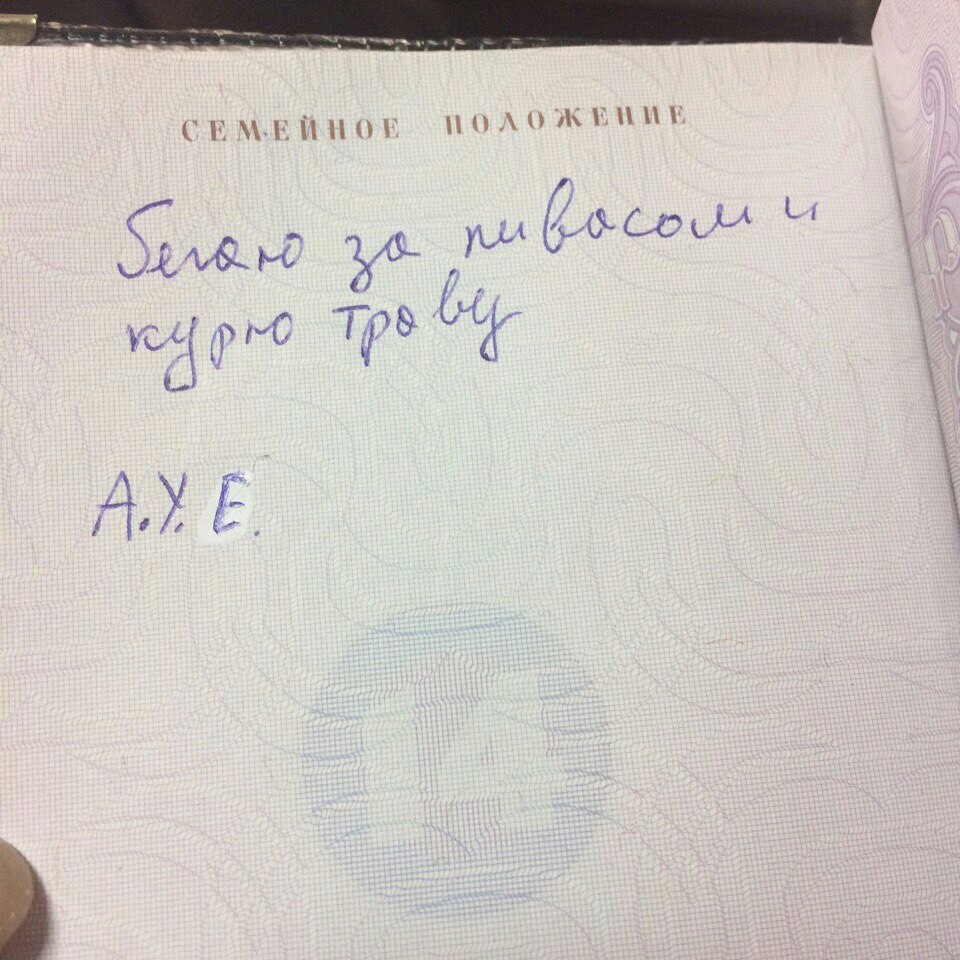 СЕМЕЙНОЕ ПОЛОЖЕНИЕ
Бегаю за пивасом и
курю траву
А.У.Е.
14